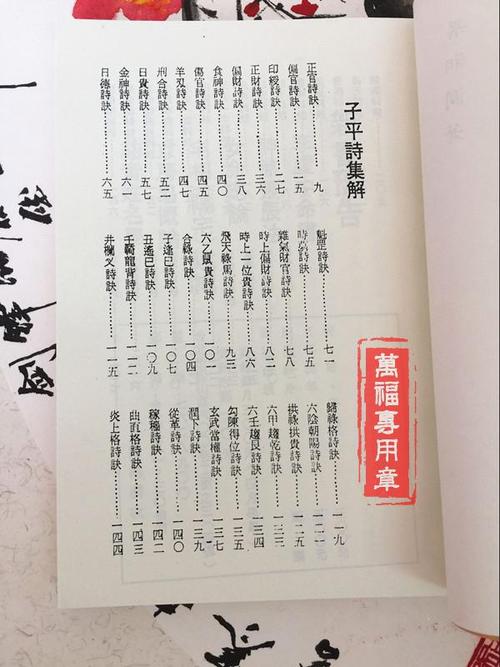 子平詩集解
正官詩訣…………九
偏官詩訣…………一五
印綬詩訣…………二七
正財詩訣…………三六
偏財詩訣…………三八
食神詩訣…………四〇
傷官詩訣…………四五
羊刃詩訣…………四七
刑合詩訣…………五二
日貴詩訣…………五七
金神詩訣…………六一
日德詩訣…………六五
魁罡詩訣…………七一
時墓詩訣…………七五
雜氣財官詩訣…………七八
時上偏財詩訣…………八二
時上一位貴詩訣…………八六
飛天祿馬詩訣…………九三
六乙鼠貴詩訣…………一〇一
合祿詩訣…………一〇四
子遙巳詩訣…………一〇七
丑遙巳詩訣…………一〇九
壬騎龍背詩訣…………一一二
井欄叉詩訣…………一一五
歸祿格詩訣…………一一九
六陰朝陽詩訣…………一二二
拱祿拱貴詩訣…………一二五
六甲趨乾詩訣…………一三三
六壬趨艮詩訣…………一三四
勾陳得位詩訣…………一三五
玄武當權詩訣…………一三七
潤下詩訣…………一三九
從革詩訣…………一四〇
稼穡詩訣…………一四二
曲直格詩訣…………一四三
炎上格詩訣…………一四四
萬福專用章